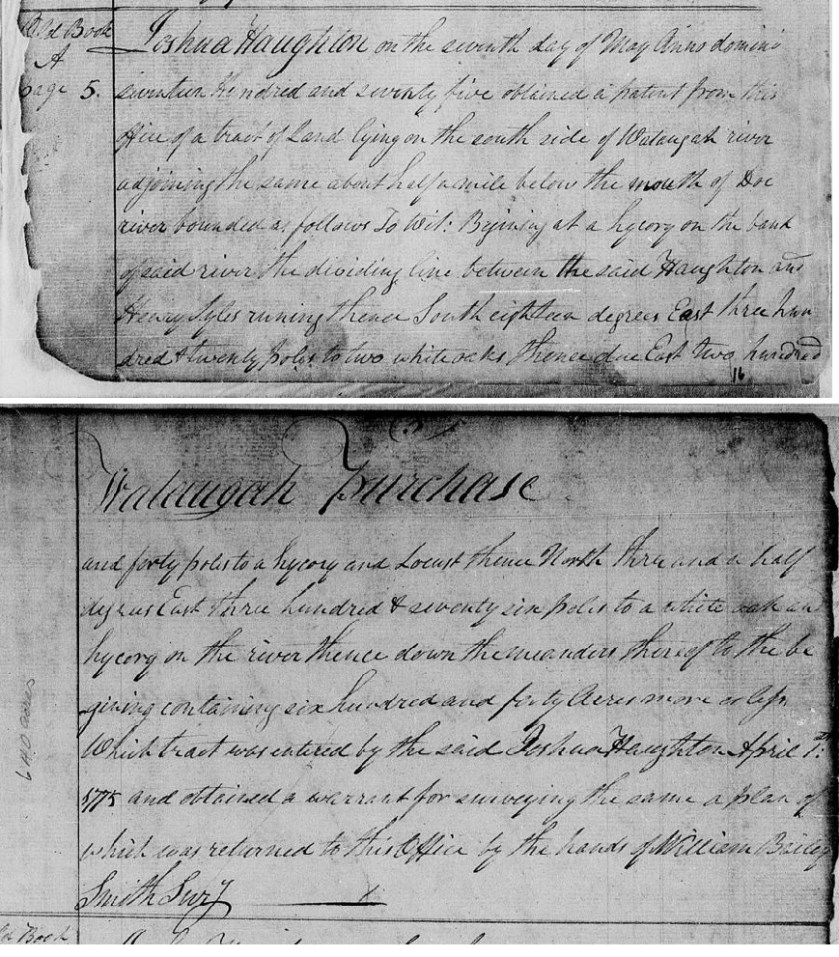 Old Book
A
page 5.
Joshua Haughton on the seventh day of May Anno domini
seventeen Hundred and seventy five obtained a patent from this
office of a tract of Land lying on the south side of Wataugah river
adjoining the same about half a mile below the mouth of Doe
river bounded as follows To Wit: Begining at a hycory on the bank
of said river the dividing line between the said Haughton and
Henry Lyles runing thence South eighteen degrees East three hun
dred & twenty poles to two white oaks thence due East two hundred
16
Wataugah Purchase
and forty poles to a hycory and Locust thence North three and a half
degrees East three hundred & seventy six poles to a white oak an
hycory on the river thence down the meanders thereof to the be
gining containing six hundred and forty Acres more or less
Which tract was entered by the said Joshua Haughton April 1st:
1775 and obtained a warrant for surveying the same a plan of
which was returned to this Office by the hands of William Bailey
Smith Survy
640 acres
Old Book